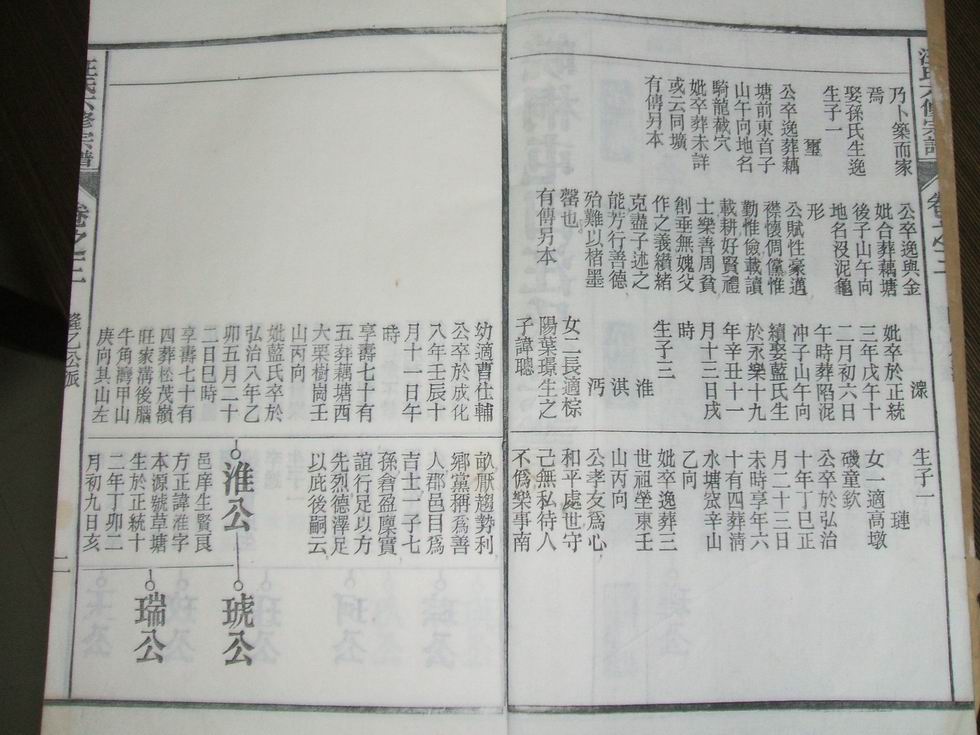 汪氏六修宗譜
乃卜築而家
焉
娶孫氏生逸
生子一
璽
公卒逸葬藕
塘前東首子
山午向地名
騎龍截穴
妣卒葬未詳
或云同壙
有傳另本
公卒逸與金
妣合葬藕塘
後子山午向
地名沒泥龜
形
公賦性豪邁
襟懷倜儻惟
勤惟儉載讀
載耕好賢禮
士樂善周貧
創垂無媿父
作之義續緒
克盡子述之
能芳行善德
殆難以楮墨
罄也
有傳另本
妣卒於正統
三年戊午十
二月初六日
午時葬陷泥
冲子山午向
續娶藍氏生
於永樂十九
年辛丑十一
月十三日戌
時
生子三
淮
淇
沔
女二長適棕
陽葉璟生之
子諱聰
幼適曹仕輔
公卒於成化
八年壬辰十
月十一日午
時
享壽七十有
五葬藕塘西
大栗樹崗壬
山丙向
妣藍氏卒於
弘治八年乙
卯五月二十
二日巳時
享壽七十有
四葬松茂嶺
旺家溝後腦
牛角灣甲山
庚向其山左
生子一
璉
女一適高墩
磯童欽
公卒於弘治
十年丁巳正
月二十三日
未時享年六
十有四葬淸
水塘窊辛山
乙向
妣卒逸葬三
世祖塋東壬
山丙向
公孝友爲心
和平處世守
己無私待人
不僞樂事南
畝厭趨勢利
鄉黨稱爲善
人郡邑目爲
吉士一子七
孫倉盈廩實
誼行足以方
先烈德澤足
以庇後嗣云
淮公
邑庠生賢良
方正諱淮字
本源號草塘
生於正統十
二年丁卯二
月初九日亥
琥公
瑞公
汪氏六修宗譜
卷之二
隆乙公派
二